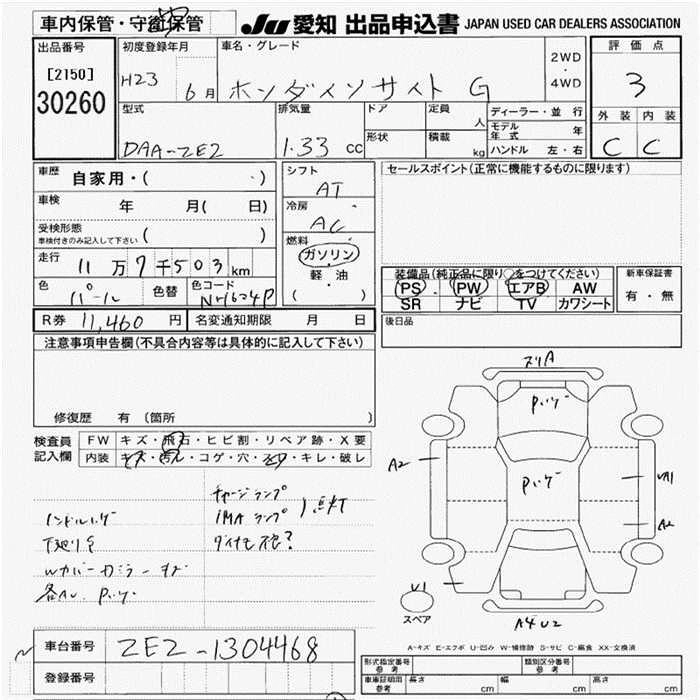 車内保管・守衛保管
JU 愛知 出品申込書 JAPAN USED CAR DEALERS ASSOCIATION
出品番号
[2150]
30260
初度登録年月
H23 6月
車名・グレード
ホンダ インサイト G
2WD
・
4WD
評価点
3
外装 内装
C C
型式
DAA-ZE2
排気量
1.33 cc
ドア
形状
定員
人
積載
kg
ディーラー・並行
モデル年式 年
ハンドル 左・右
車歴
自家用・( ・ )
車検
年 月( 日)
受検形態
車検付きのみ記入して下さい ( )
走行
11万7千503km
色
パール
色替
色コード
NH624P
シフト
AT
冷房
AC
燃料
ガソリン
・
軽油
( )
セールスポイント(正常に機能するものに限ります)
装備品(純正品に限り○をつけてください)
PS PW エアB AW
SR ナビ TV カワシート
新車保証書
有・無
R券 11,460 円 名変通知期限 月 日
後日品
注意事項申告欄(不具合内容等は具体的に記入して下さい)
修復歴 有(箇所 )
検査員
記入欄
FW キズ・飛石・ヒビ割・リペア跡・X要
内装 キズ・汚れ・コゲ・穴・スレ・キレ・破レ
チャージランプ
IMAランプ 点灯
ハンドルハゲ
下廻りサ
Wカバー ガラー キズ
各AU Pハゲ
スリA
Pハゲ
Pハゲ
A2
UA1
A2
U1
スペア
A4U2
A-キズ E-エクボ U-凹み W-補修跡 S-サビ C-腐食 XX-交換済
車台番号 ZE2-1304468
登録番号
型式指定番号 参考
類別区分番号 参考
車庫証明用 参考 長さ cm 幅 cm 高さ cm